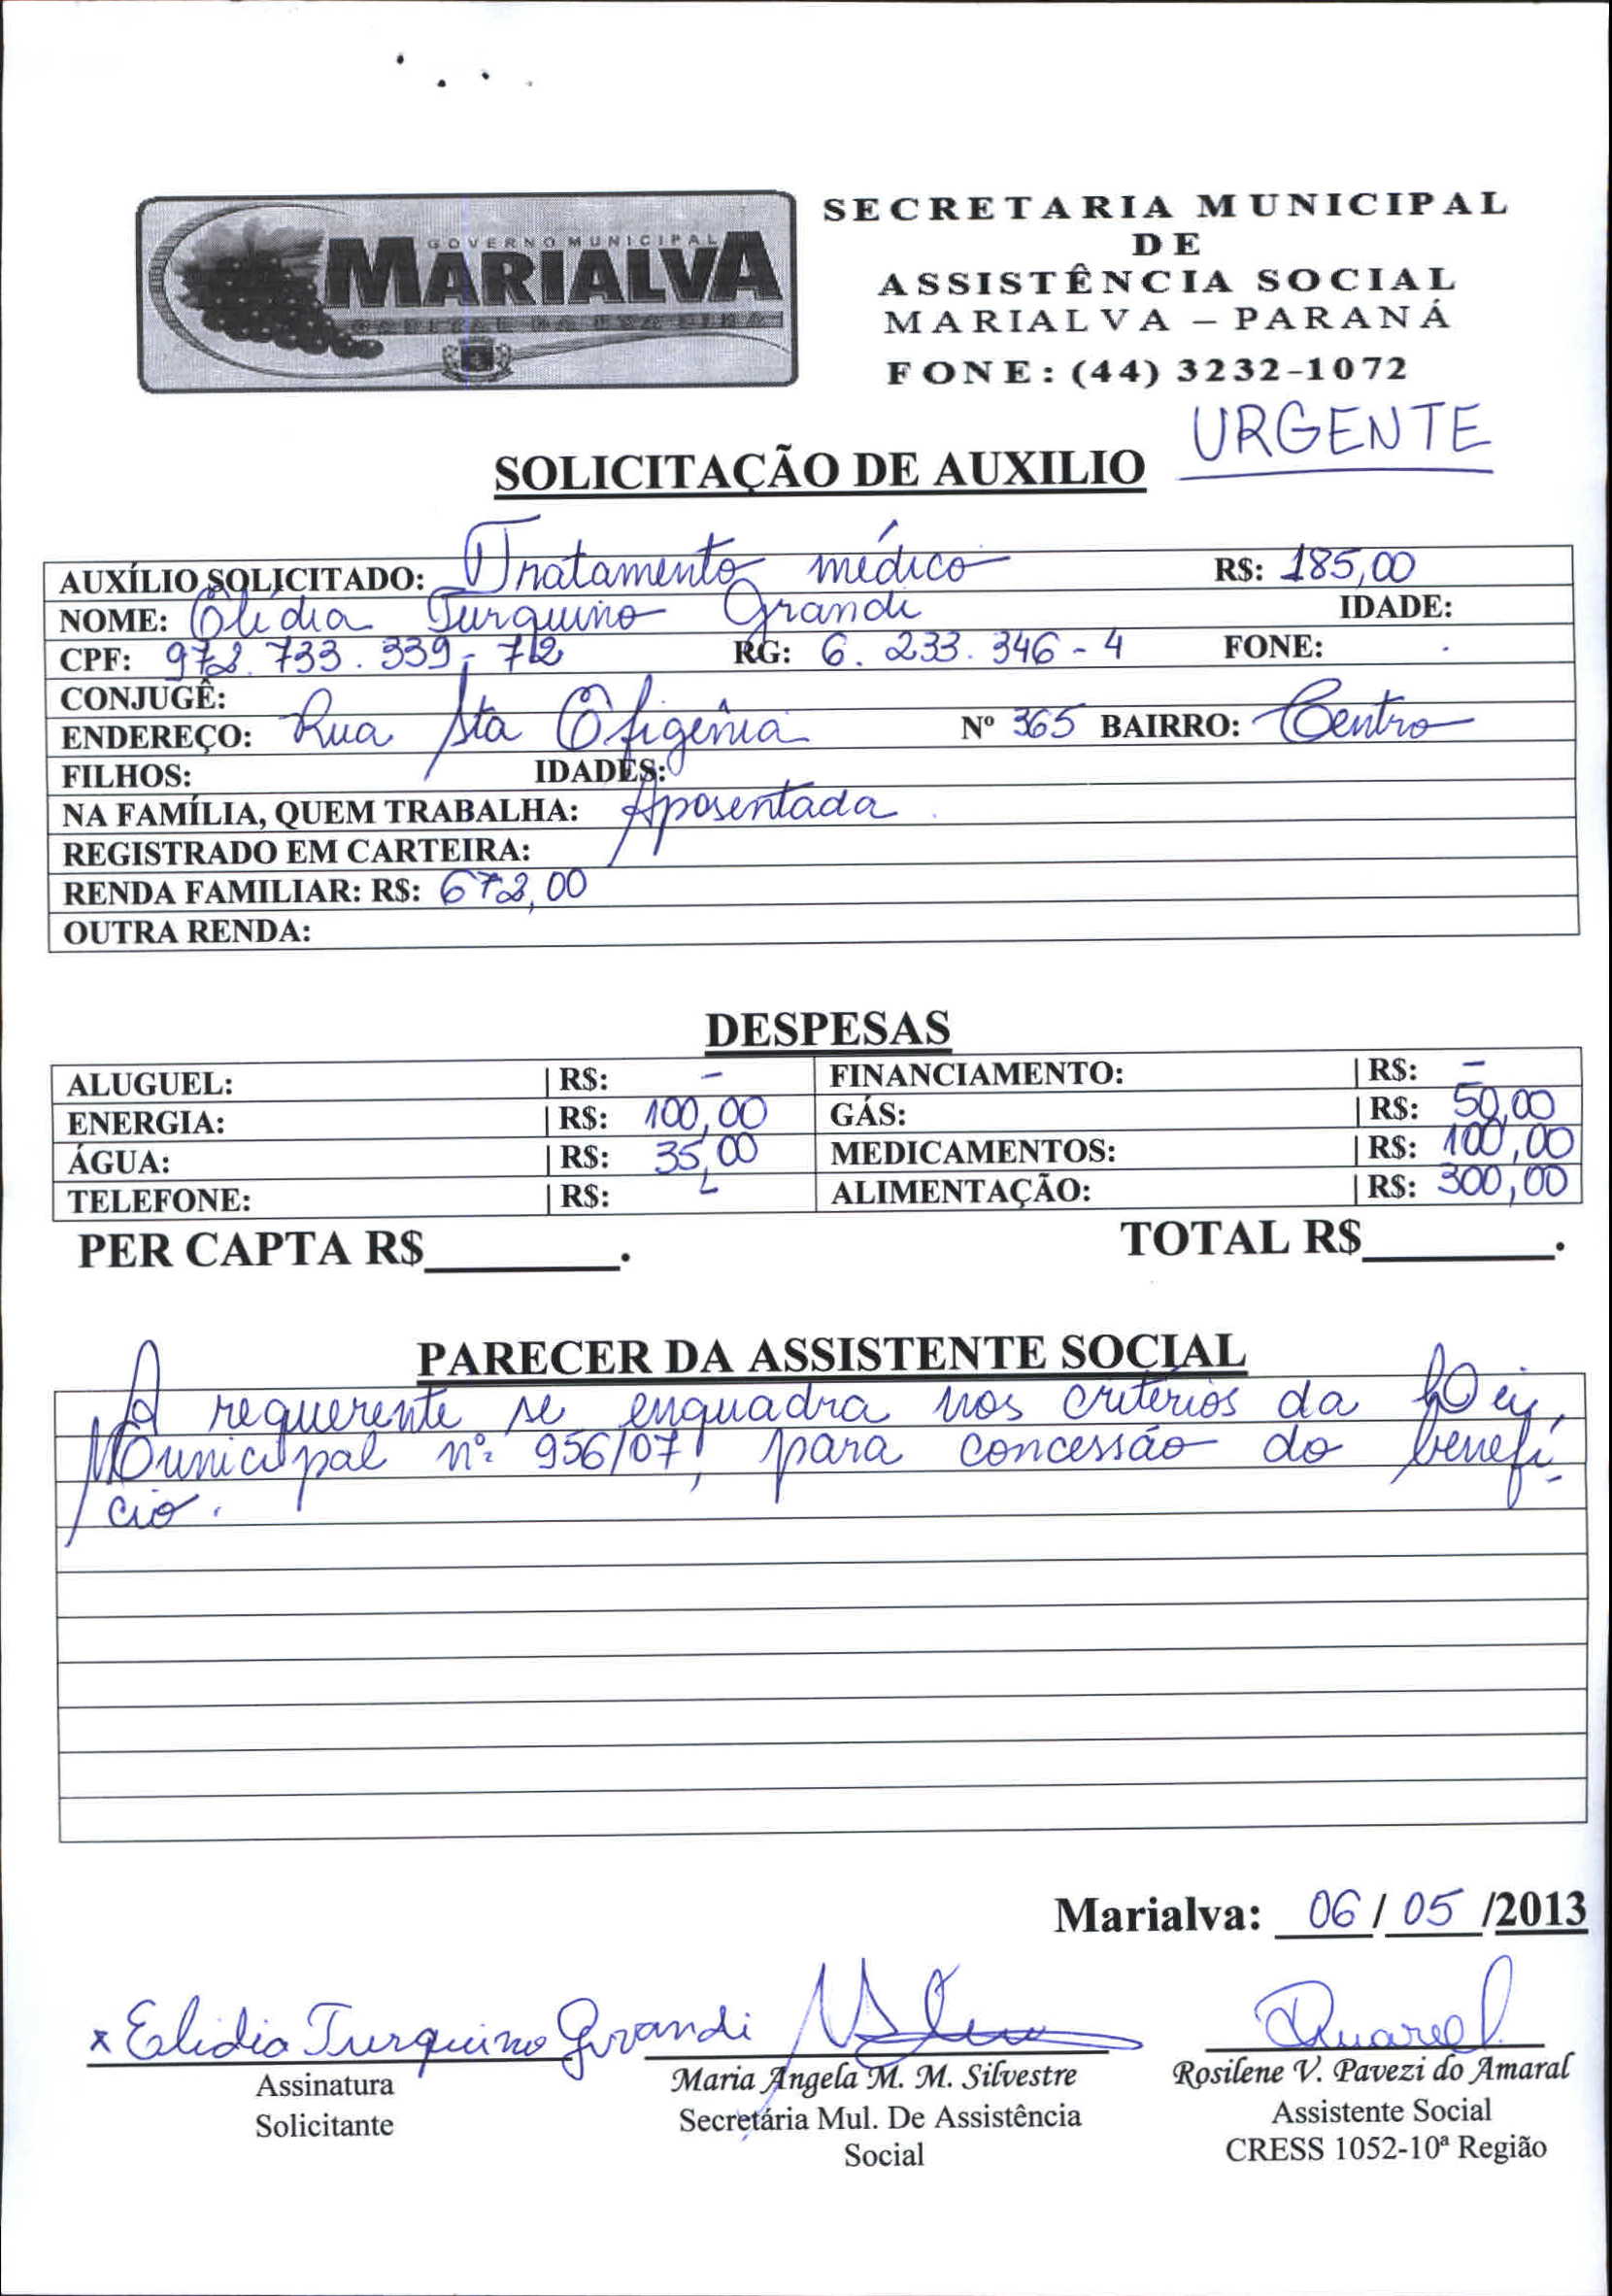 GOVERNO MUNICIPAL
MARIALVA
CAPITAL DA UVA FINA
SECRETARIA MUNICIPAL
DE
ASSISTÊNCIA SOCIAL
MARIALVA – PARANÁ
FONE: (44) 3232-1072
URGENTE
SOLICITAÇÃO DE AUXILIO
AUXÍLIO SOLICITADO: Tratamento médico R$: 185,00
NOME: Elidia Turquino Grandi IDADE:
CPF: 972.733.339-72 RG: 6.233.346-4 FONE:
CONJUGÊ:
ENDEREÇO: Rua Sta Efigênia Nº 365 BAIRRO: Centro
FILHOS: IDADES:
NA FAMÍLIA, QUEM TRABALHA: Aposentada
REGISTRADO EM CARTEIRA:
RENDA FAMILIAR: R$: 672,00
OUTRA RENDA:
DESPESAS
ALUGUEL: | R$: - FINANCIAMENTO: | R$: -
ENERGIA: | R$: 100,00 GÁS: | R$: 50,00
ÁGUA: | R$: 35,00 MEDICAMENTOS: | R$: 100,00
TELEFONE: | R$: - ALIMENTAÇÃO: | R$: 300,00
PER CAPTA R$________. TOTAL R$________.
PARECER DA ASSISTENTE SOCIAL
A requerente se enquadra nos critérios da Lei
Municipal nº 956/07, para concessão do benefí-
cio.
Marialva: 06/05/2013
x Elidia Turquino Grandi
Assinatura
Solicitante
Maria Ângela M. M. Silvestre
Secretária Mul. De Assistência
Social
Rosilene V. Pavezi do Amaral
Assistente Social
CRESS 1052-10ª Região